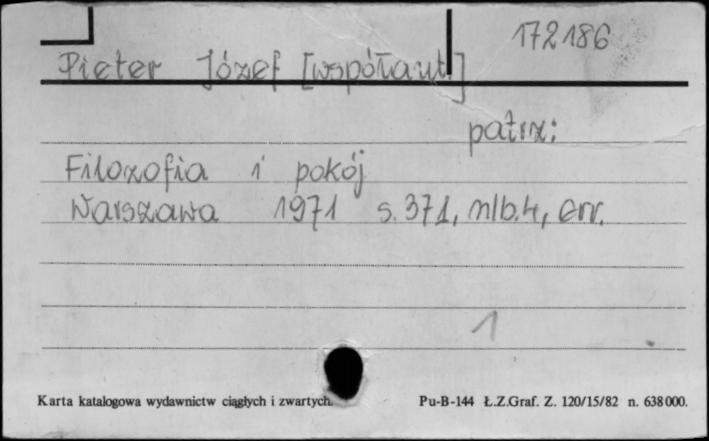 172186
Pieter Józef [współaut]
patrz:
Filozofia i pokój
Warszawa 1971 s. 371, nlb. 4, err.
1
Karta katalogowa wydawnictw ciągłych i zwartych. Pu-B-144 Ł.Z.Graf. Z. 120/15/82 n. 638000.